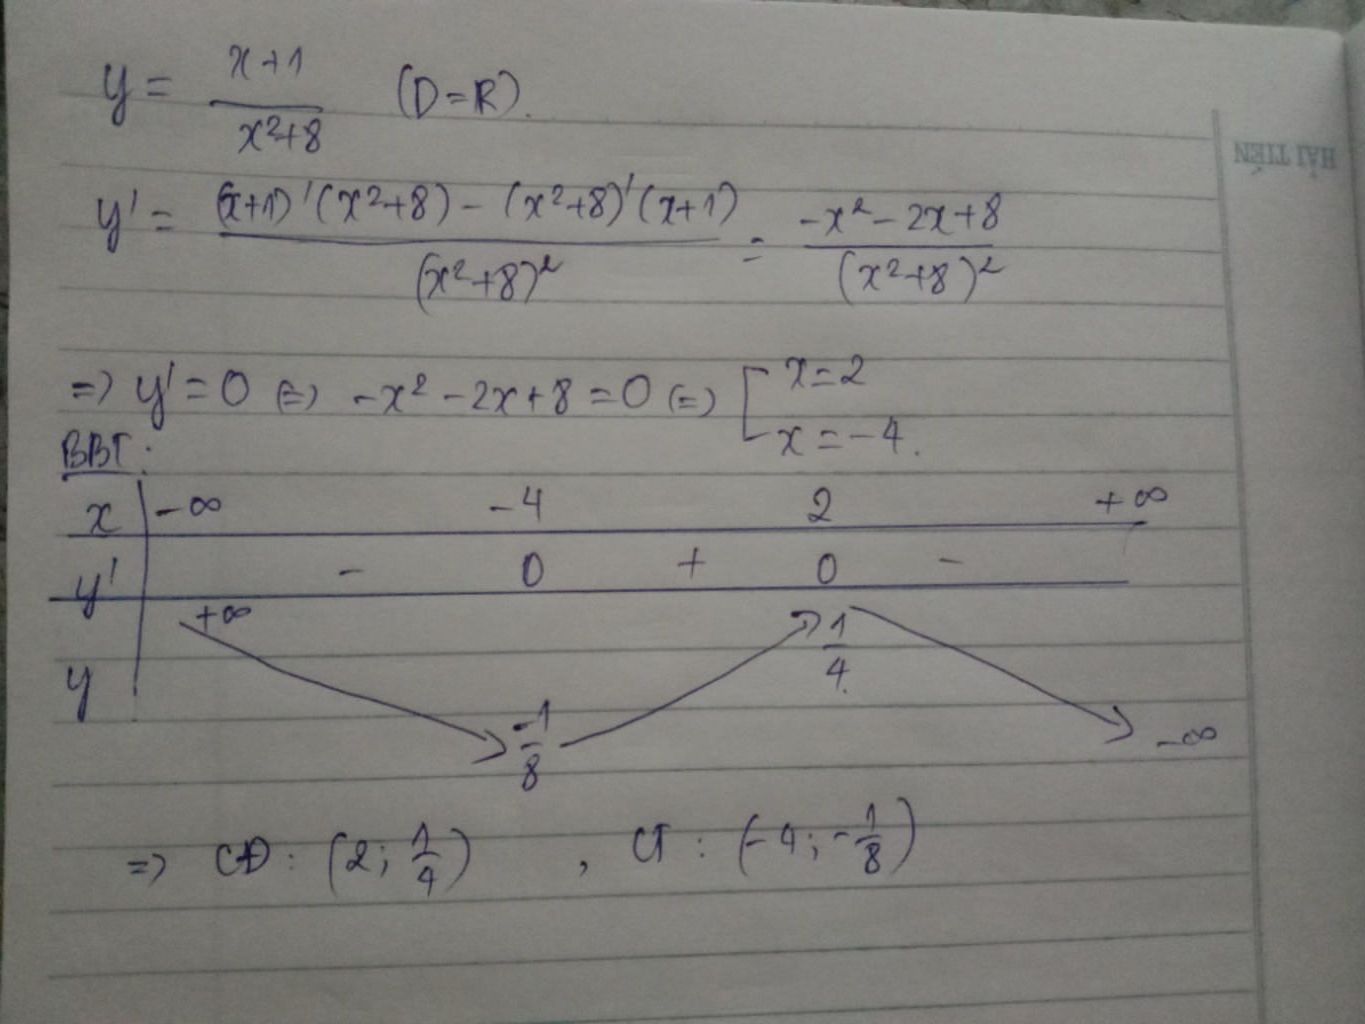 y = x+1 / x²+8 (D=R).
y' = (x+1)'(x²+8) - (x²+8)'(x+1) / (x²+8)² = -x² - 2x+8 / (x²+8)²
=> y' = 0 (=) -x² - 2x + 8 = 0 (=) [ x = 2
x = -4.
BBT:
x | -∞ -4 2 +∞
y' - 0 + 0 -
y +∞ -1/8 1/4 -∞
=> CĐ : (2; 1/4) , CT : (-4; -1/8)
HẢI TIẾN